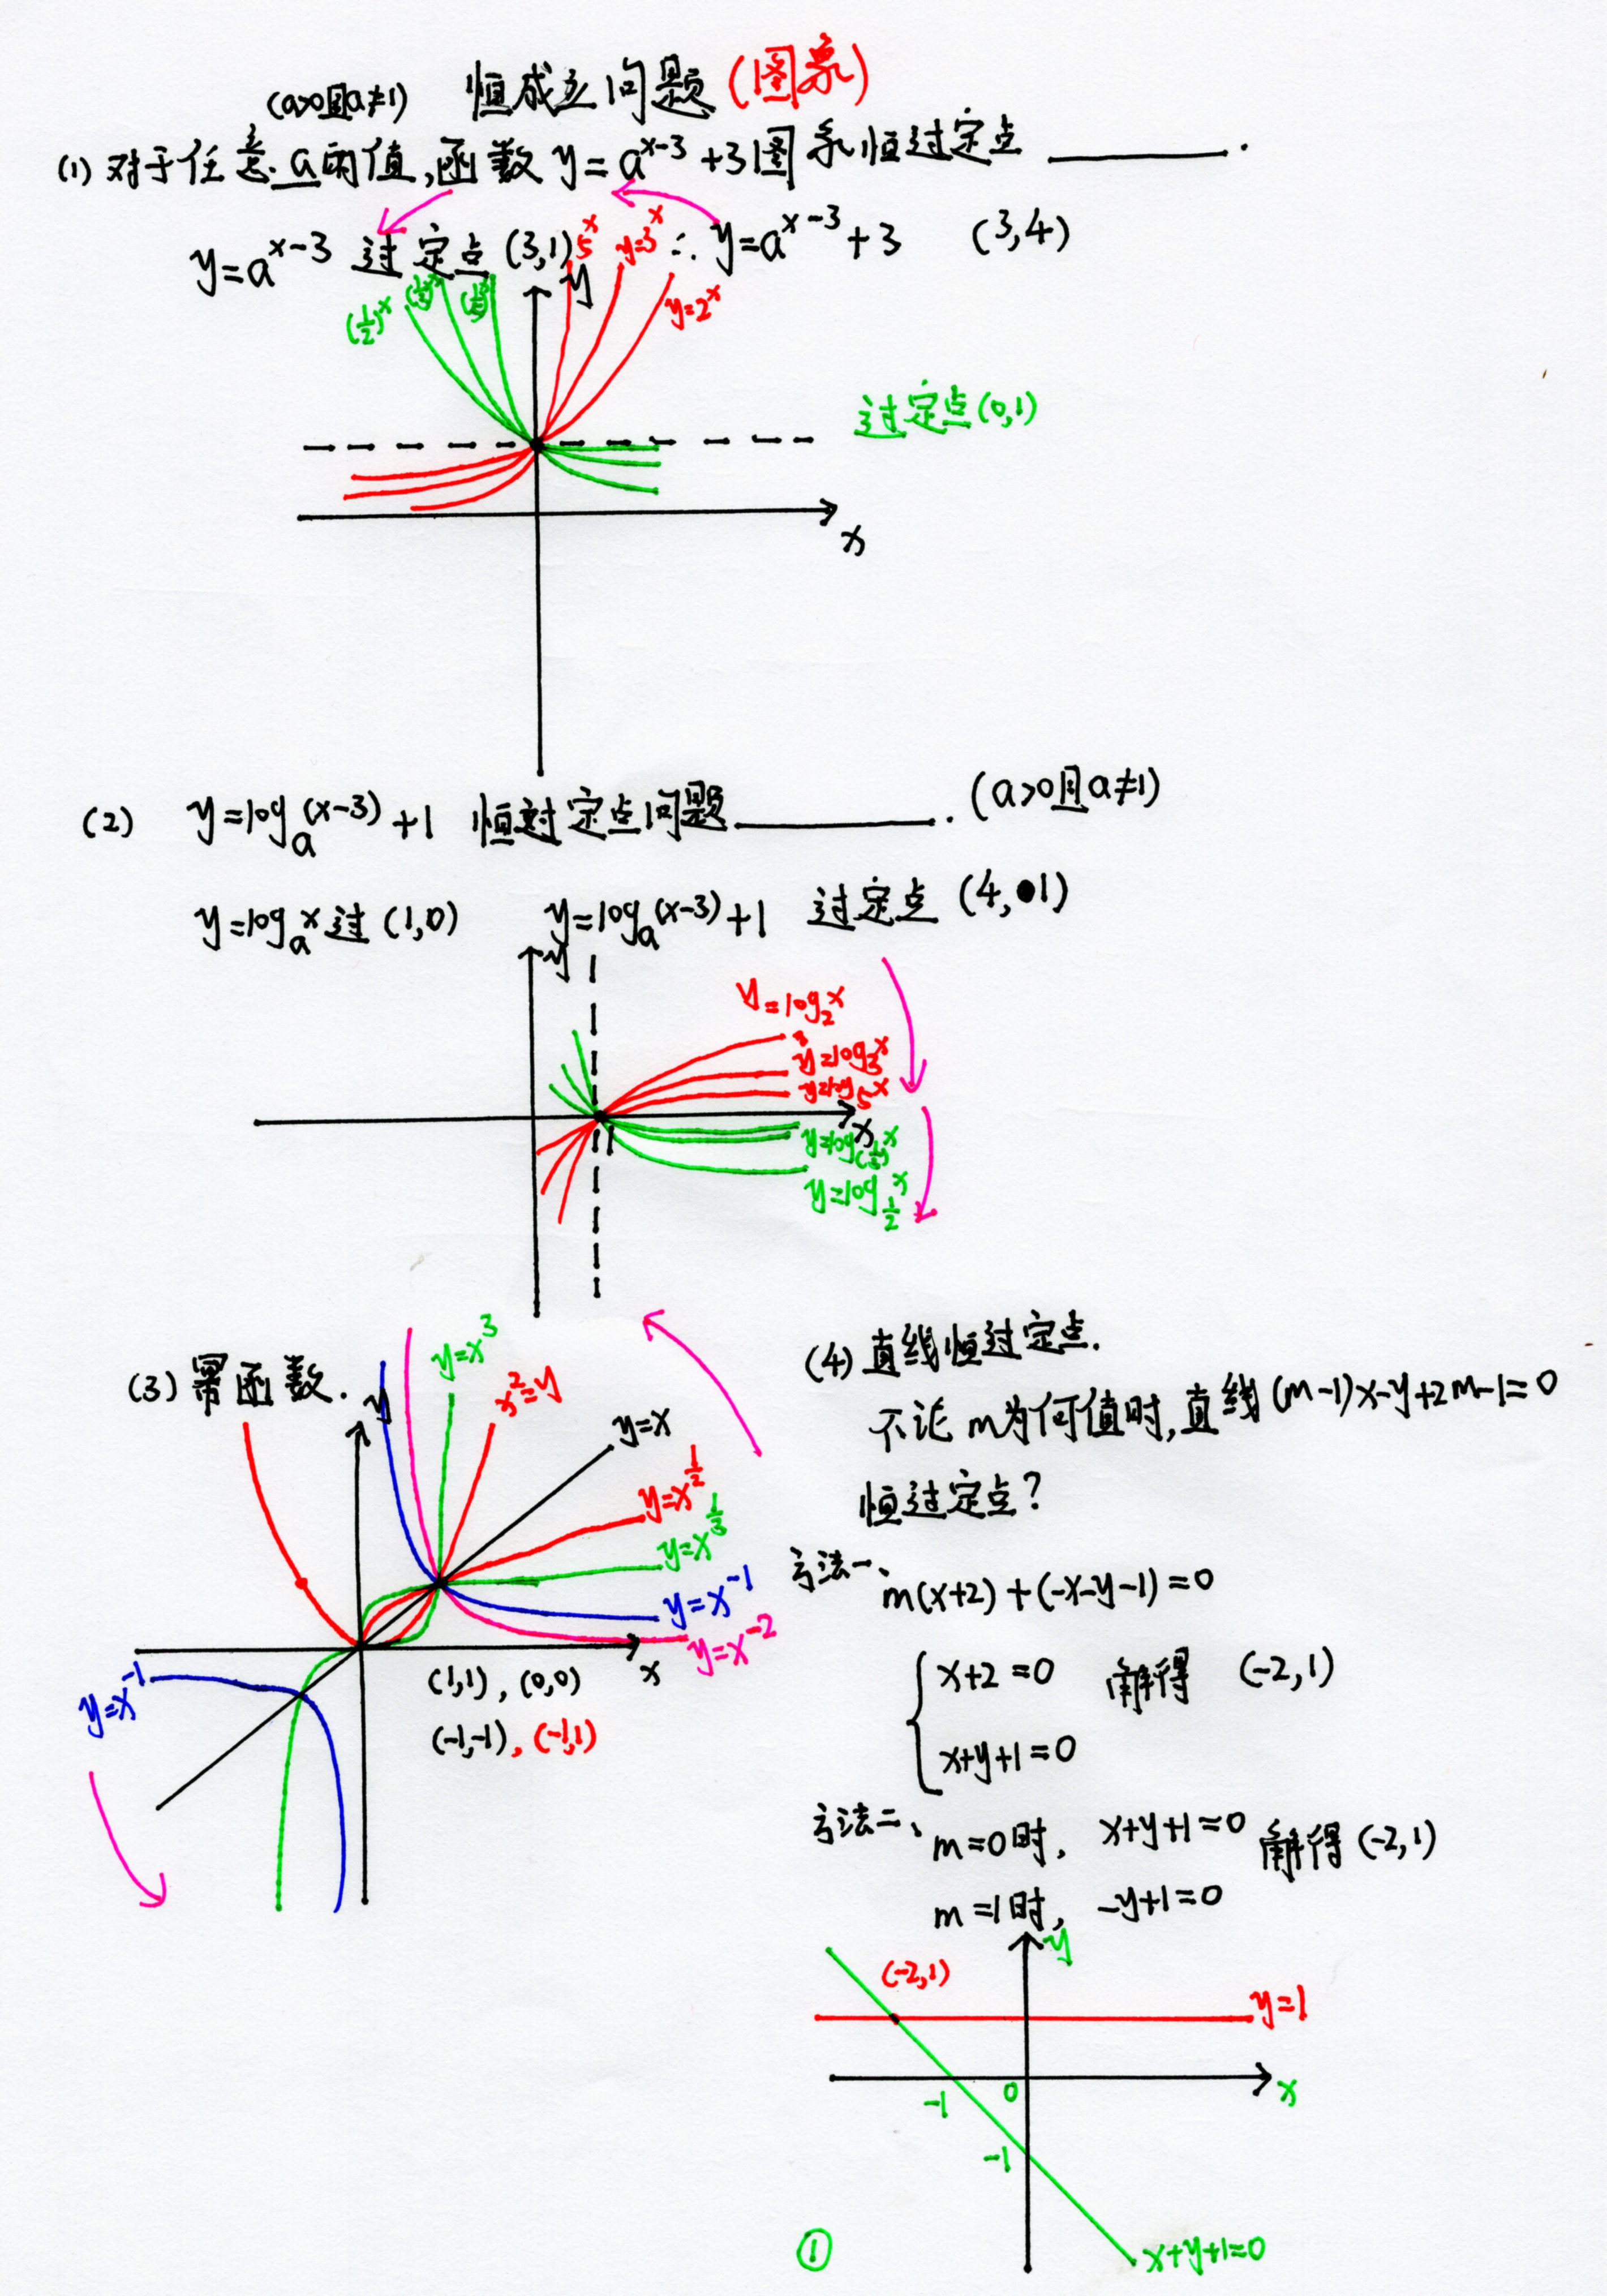 恒成立问题(图象)
(a>0且a≠1)
(1) 对于任意a的值,函数 y=a^{x-3}+3图象恒过定点 ________.
y=a^{x-3} 过定点 (3,1) ∴ y=a^{x-3}+3 (3,4)
5^x y=3^x
(1/2)^x (1/3)^x (1/5)^x y y=2^x
过定点(0,1)
x
(2) y=log_a(x-3)+1 恒过定点问题________. (a>0且a≠1)
y=log_a x 过 (1,0) y=log_a(x-3)+1 过定点 (4,1)
y
y=log_2 x
y=log_3 x
y=log_5 x
x
1
y=log_(1/3) x
y=log_{1/2} x
(3) 幂函数.
y
y=x^3
x^2=y
y=x
y=x^{1/2}
y=x^{1/3}
y=x^{-1}
y=x^{-2}
x
y=x^{-1}
(1,1), (0,0)
(-1,-1), (-1,1)
(4) 直线恒过定点.
不论m为何值时,直线(m-1)x-y+2m-1=0
恒过定点?
方法一、m(x+2)+(-x-y-1)=0
{ x+2=0 解得 (-2,1)
x+y+1=0
方法二、m=0时, x+y+1=0 解得(-2,1)
m=1时, -y+1=0
y
(-2,1)
y=1
-1 0 x
-1
x+y+1=0
①